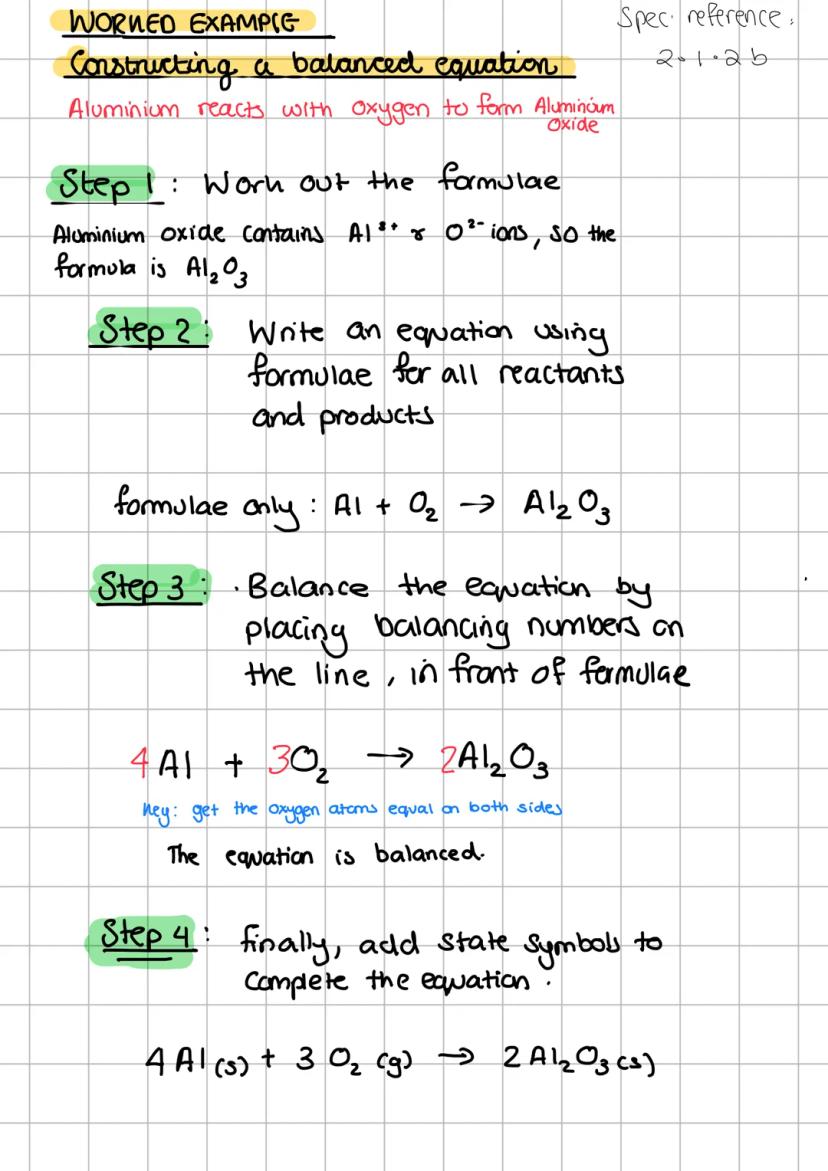 WORKED EXAMPLE
Spec. reference:
2.1.2b
Constructing a balanced equation
Aluminium reacts with oxygen to form Aluminium
Oxide
Step 1: Work out the formulae
Aluminium oxide contains Al³⁺ & O²⁻ ions, so the
formula is Al₂O₃
Step 2: Write an equation using
formulae for all reactants
and products
formulae only: Al + O₂ → Al₂O₃
Step 3: · Balance the equation by
placing balancing numbers on
the line, in front of formulae
4Al + 3O₂ → 2Al₂O₃
key: get the oxygen atoms equal on both sides
The equation is balanced.
Step 4: finally, add state symbols to
complete the equation.
4Al(s) + 3O₂(g) → 2Al₂O₃(s)